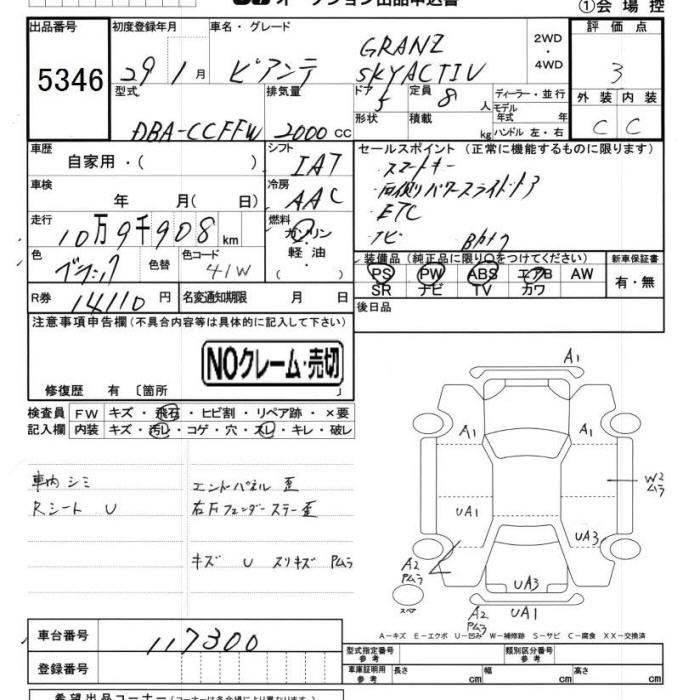 オークション出品申込書
①会場控
出品番号 初度登録年月 車名・グレード 評価点
5346 29 1月 ビアンテ GRANZ SKYACTIV 2WD・4WD 3
型式 排気量 ドア 定員 ディーラー・並行 外装 内装
DBA-CCFFW 2000cc 5 8人 モデル年式 年 C C
形状 積載 kg ハンドル 左・右
車歴 シフト セールスポイント (正常に機能するものに限ります)
自家用・( ) IAT ・スマートキー
車検 冷房 ・両側パワースライドドア
年 月( 日) AAC ・ETC
走行 燃料 ・ナビ Bカメラ
10万9千908km ガソリン
色 色替 色コード 軽油・ 装備品 (純正品に限り○をつけてください) 新車保証書
ブラック 41W ( ) PS PW ABS エアB AW 有・無
SR ナビ TV カワ
R券 14110円 名変通知期限 月 日 後日品
注意事項申告欄(不具合内容等は具体的に記入して下さい)
NOクレーム・売切
修復歴 有 〔箇所 〕
検査員 FW キズ・飛石・ヒビ割・リペア跡・×要
記入欄 内装 キズ・汚レ・コゲ・穴・スレ・キレ・破レ
車内シミ エンドパネル歪
Rシート U 右Fフェンダーステー歪
キズ U スリキズ Pムラ
A1
A1 A1
W2 ムラ
UA1
UA3
A2 Pムラ
UA3
スペア
A2 Pムラ UA1
A-キズ E-エクボ U-凹み W-補修跡 S-サビ C-腐食 XX-交換済
車台番号 117300
型式指定番号 参考 類別区分番号 参考
登録番号 車庫証明用 参考 長さ cm 幅 cm 高さ cm
希望出品コーナー